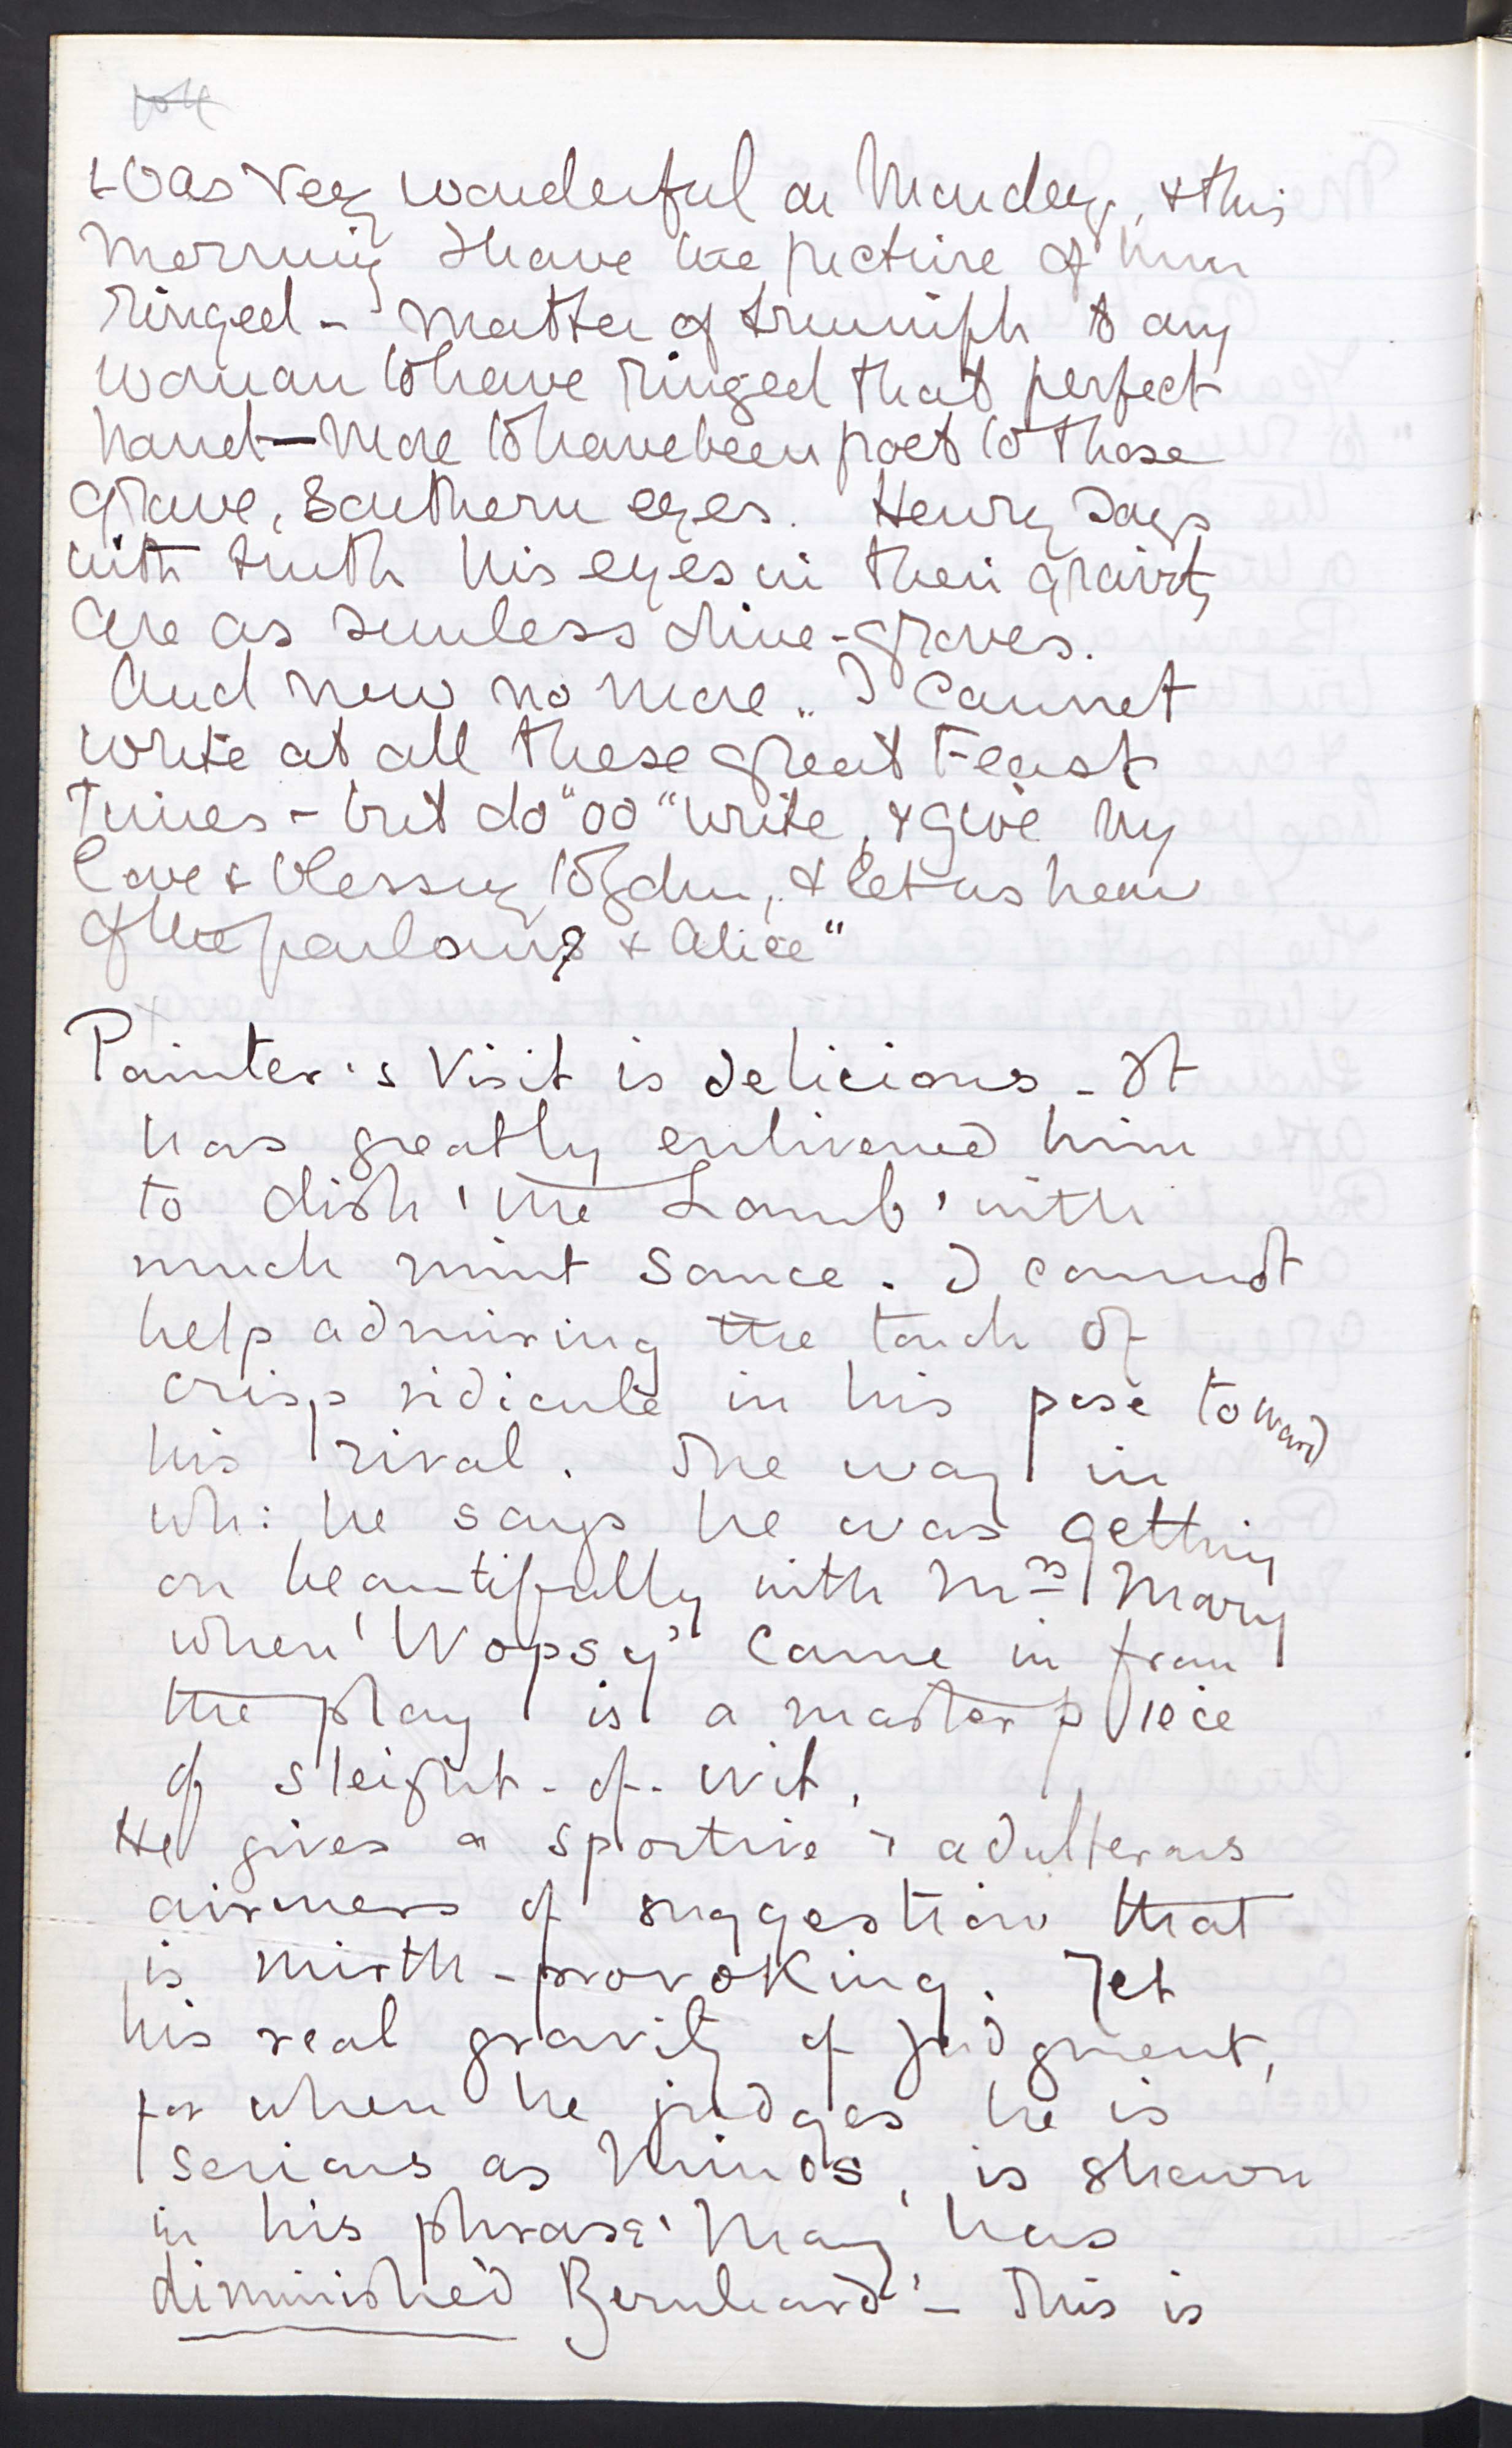 was very wonderful on Monday, & this
morning I have the picture of him
ringed - matter of triumph to any
woman to have ringed that perfect
hand — more to have been poet to those
grave, Southern eyes. Henry says
with truth his eyes in their gravity
are as sunless olive-groves.
And now no more. I cannot
write at all these great Feast
Times - but do "oo" write, & give my
love & blessing to, & let us hear
of the parlour & Alice"
Painter's Visit is delicious - It
has greatly enlivened him
to dish 'the Lamb' with
much mint sauce. I cannot
help admiring the touch of
crisp ridicule in his pose toward
his rival. The way in
wh: he says he was getting
on beautifully with Mrs Mary
when 'Wopsy' came in from
the play is a masterpiece
of sleight-of-wit.
He gives a sportive & adulterous
airiness of suggestion that
is mirth-provoking. Yet
his real gravity of judgment,
for when he judges he is
serious as Minos, is shewn
in his phrase 'Mary has
diminished Bernhard' - This is